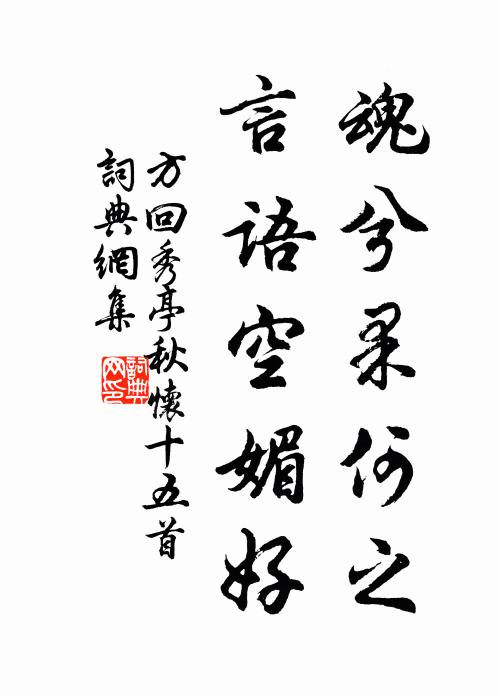 魂兮果何之
言语空媚好
方回秀亭秋懷十五首
詞典網集
詞典网印